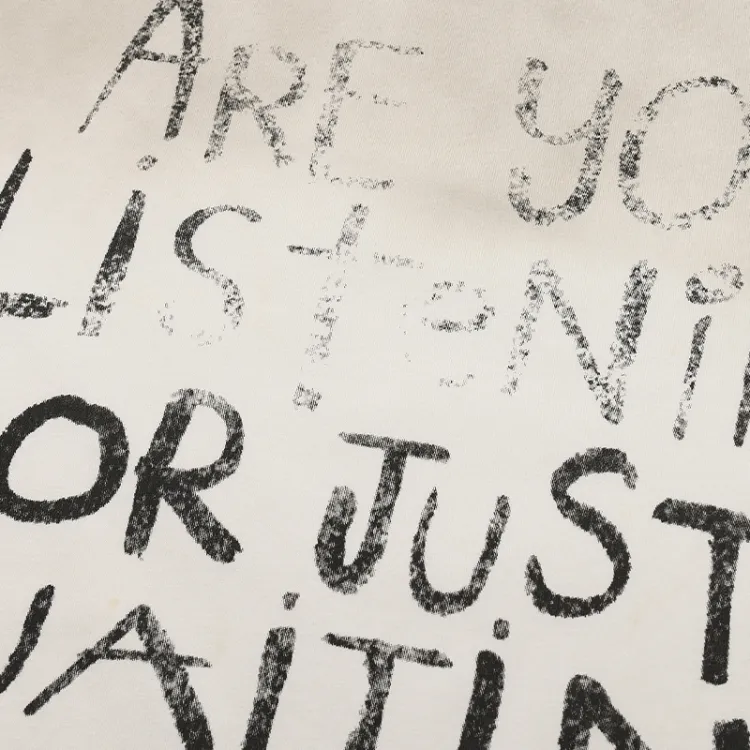 ARE YO
LiSteNi
OR JUST
AiTiN